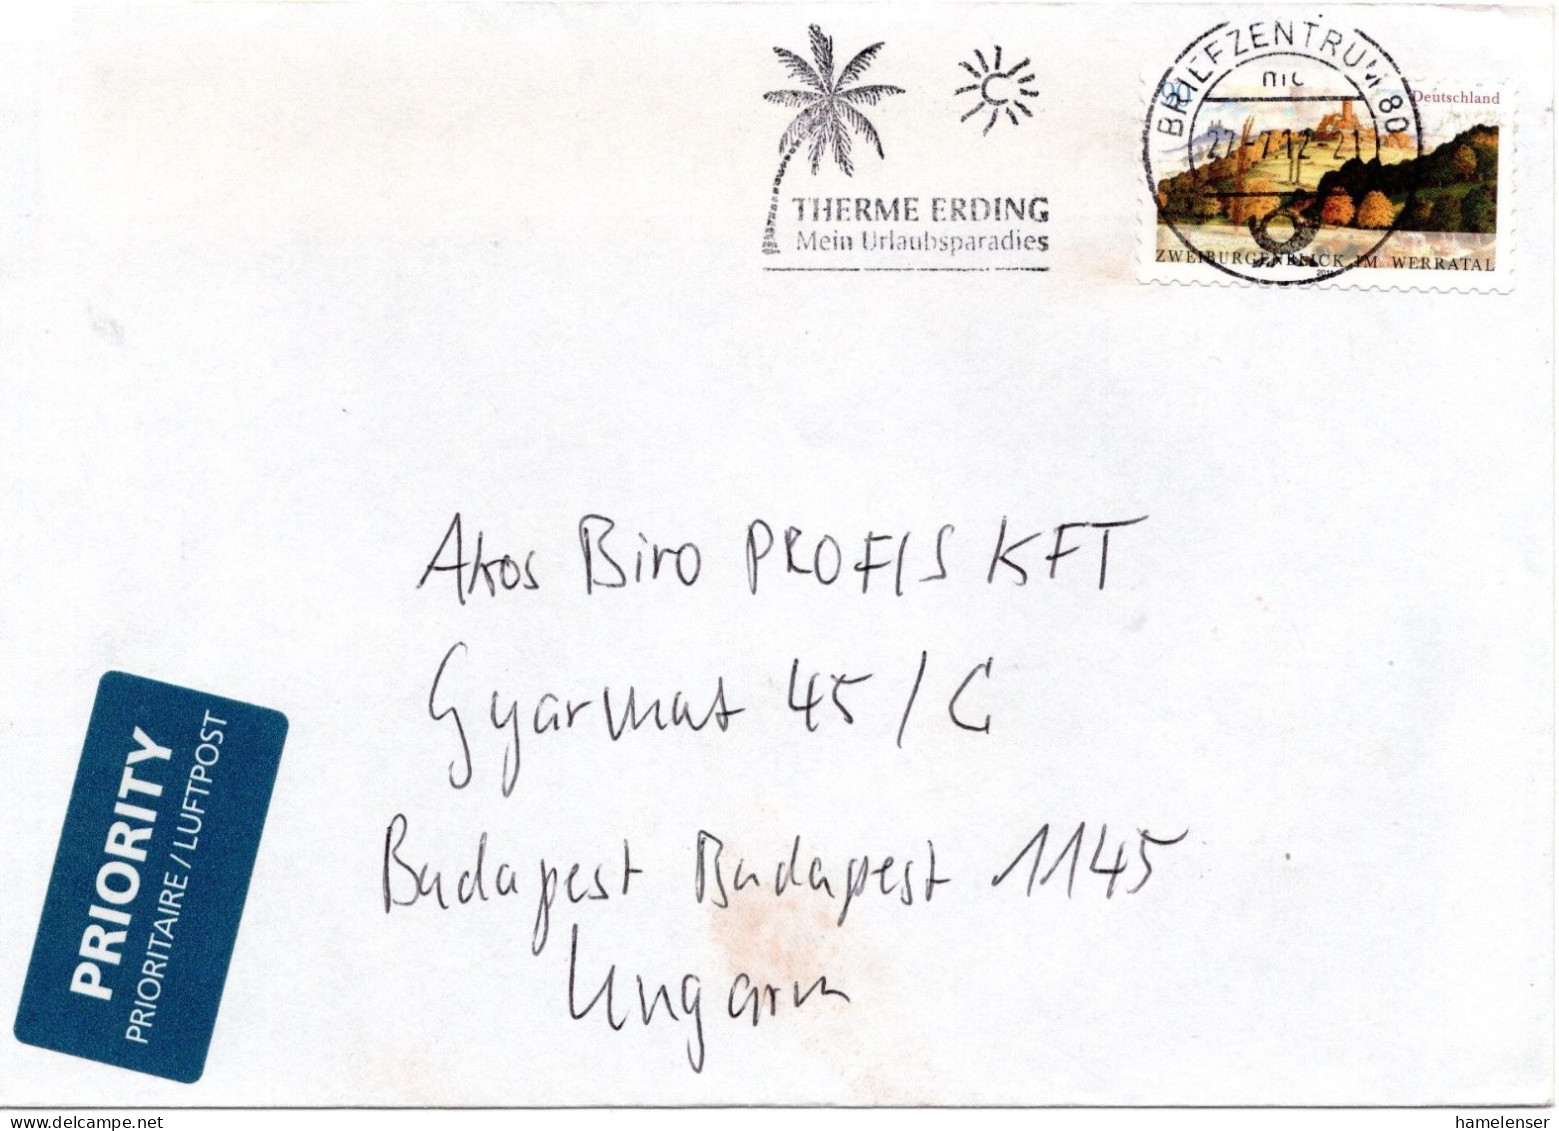 BRIEFZENTRUM 80
mc
27.-7.12-21
Deutschland
THERME ERDING
Mein Urlaubsparadies
ZWEIBURGENBLICK IM WERRATAL
2011
Akos Biro PROFIS KFT
Gyarmat 45/C
Budapest Budapest 1145
Ungarn
PRIORITY
PRIORITAIRE / LUFTPOST
hamelenser